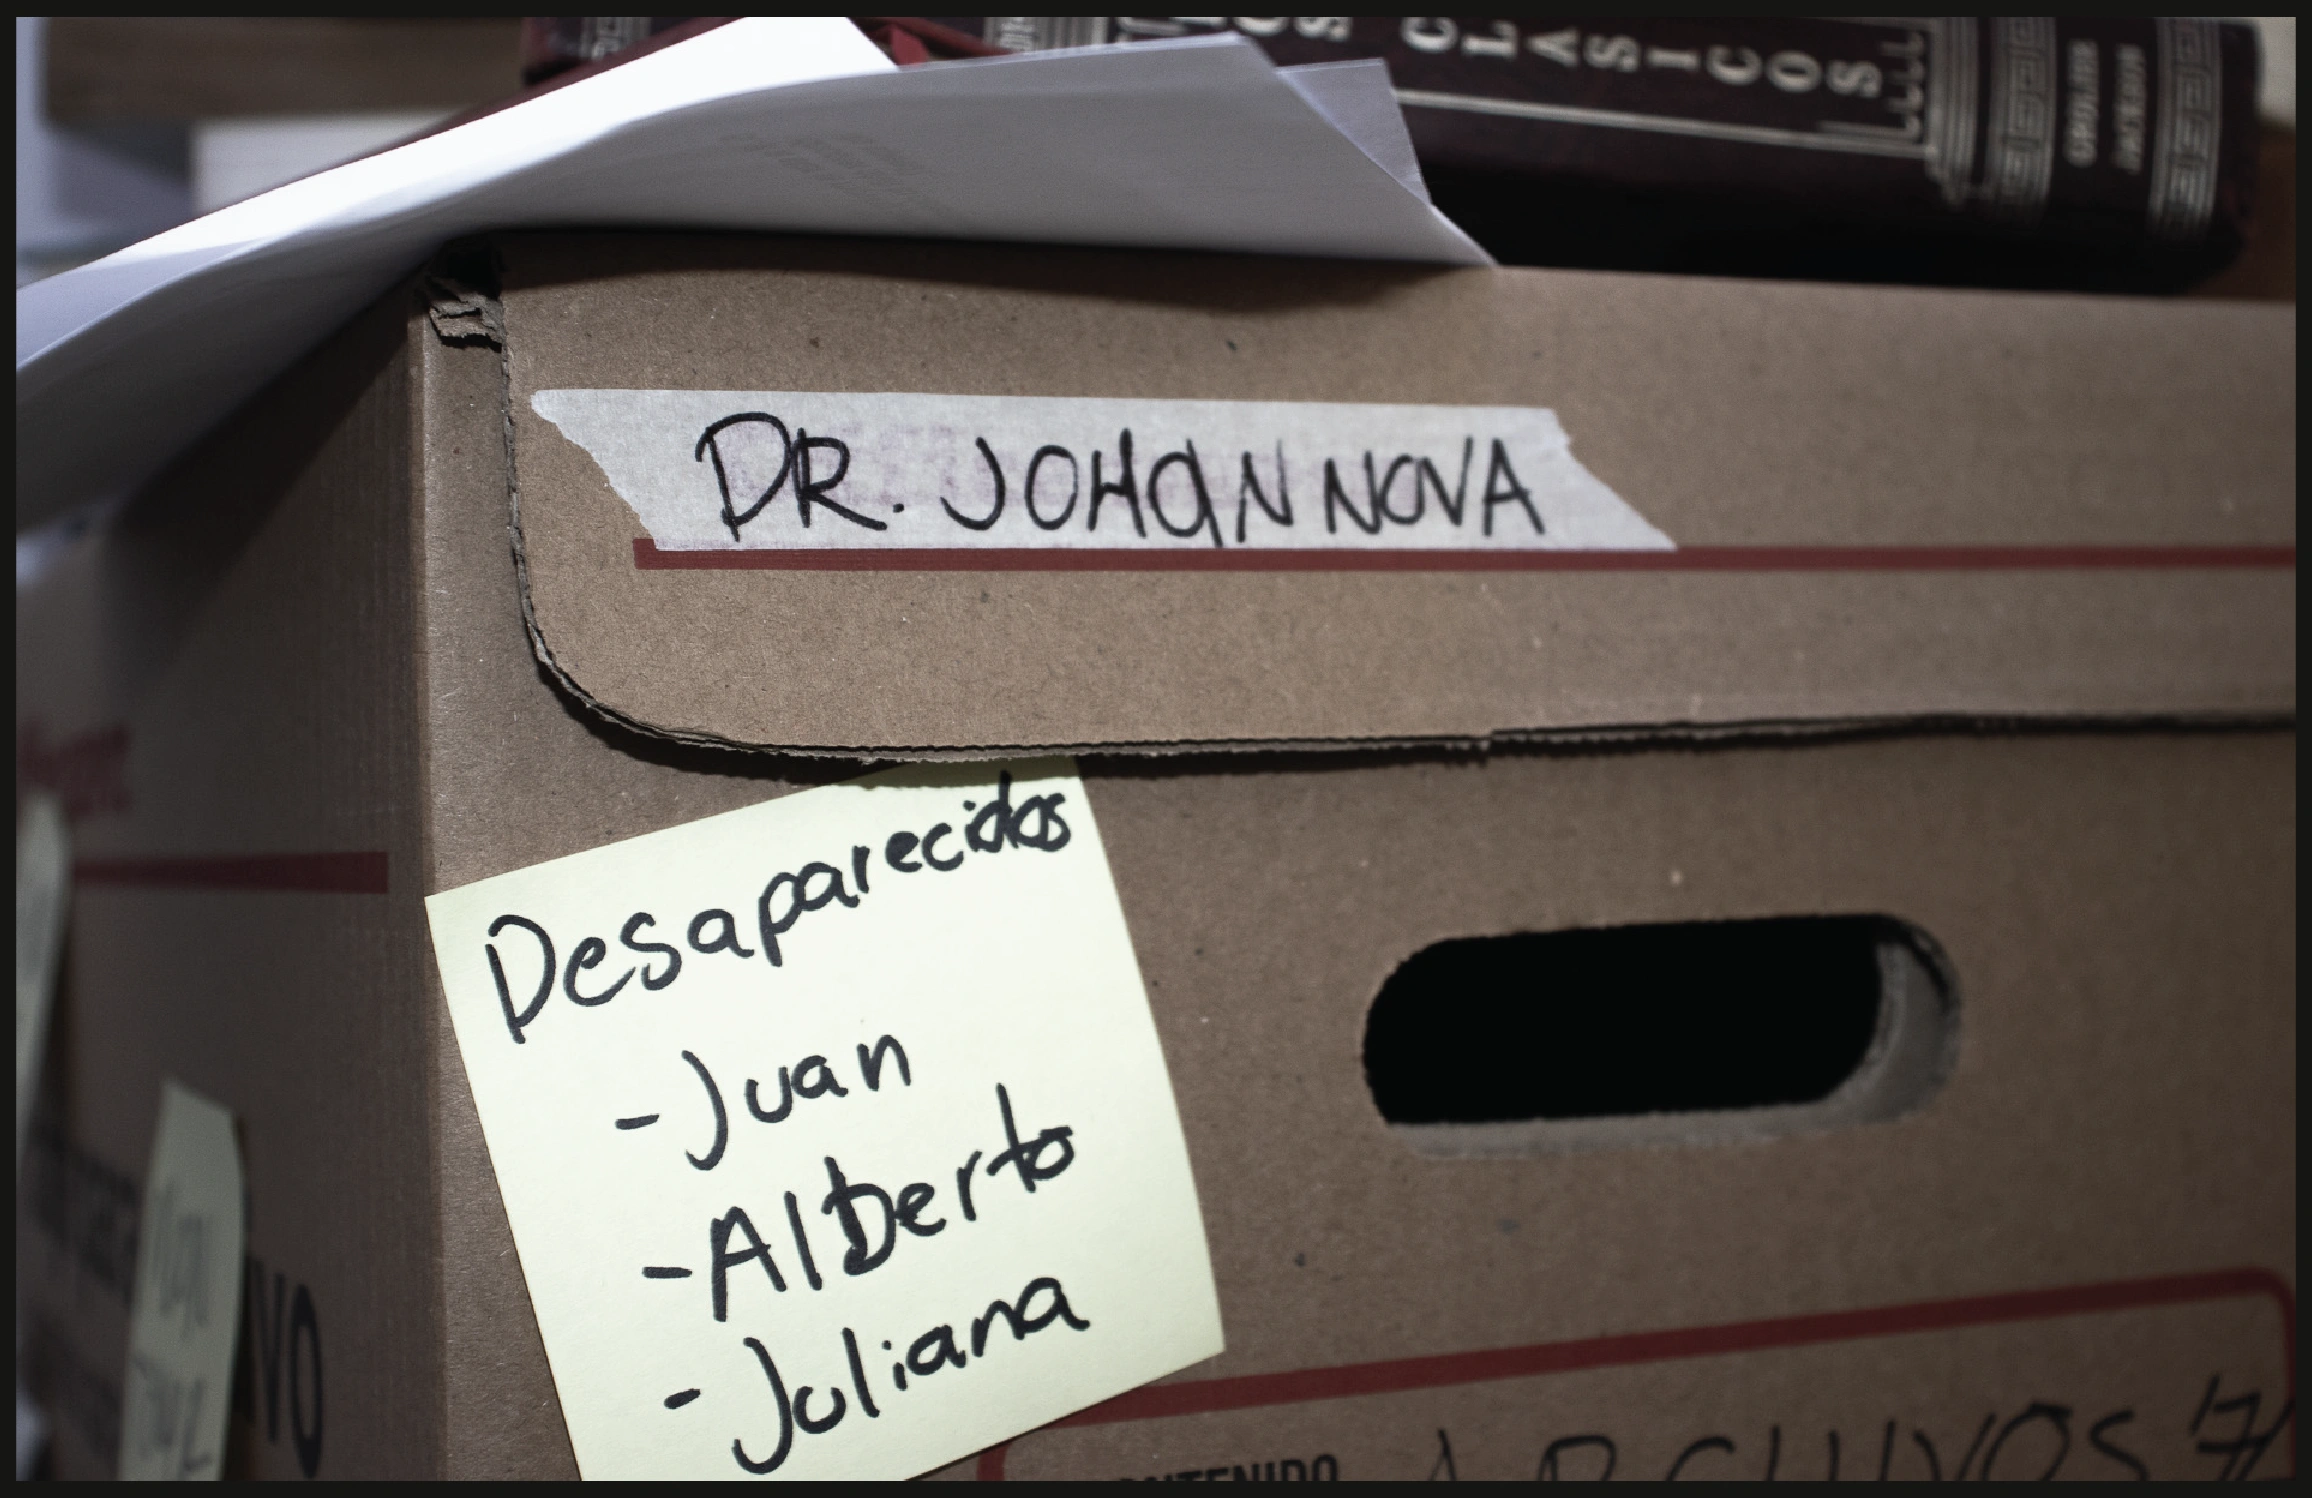 CLASICOS
DR. JOHAN NOVA
Desaparecidos
- Juan
- Alberto
- Juliana
ARCHIVOS